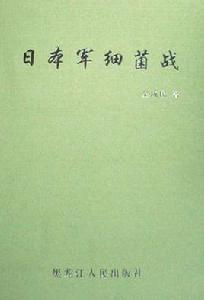 日本军细菌战
黑龙江人民出版社